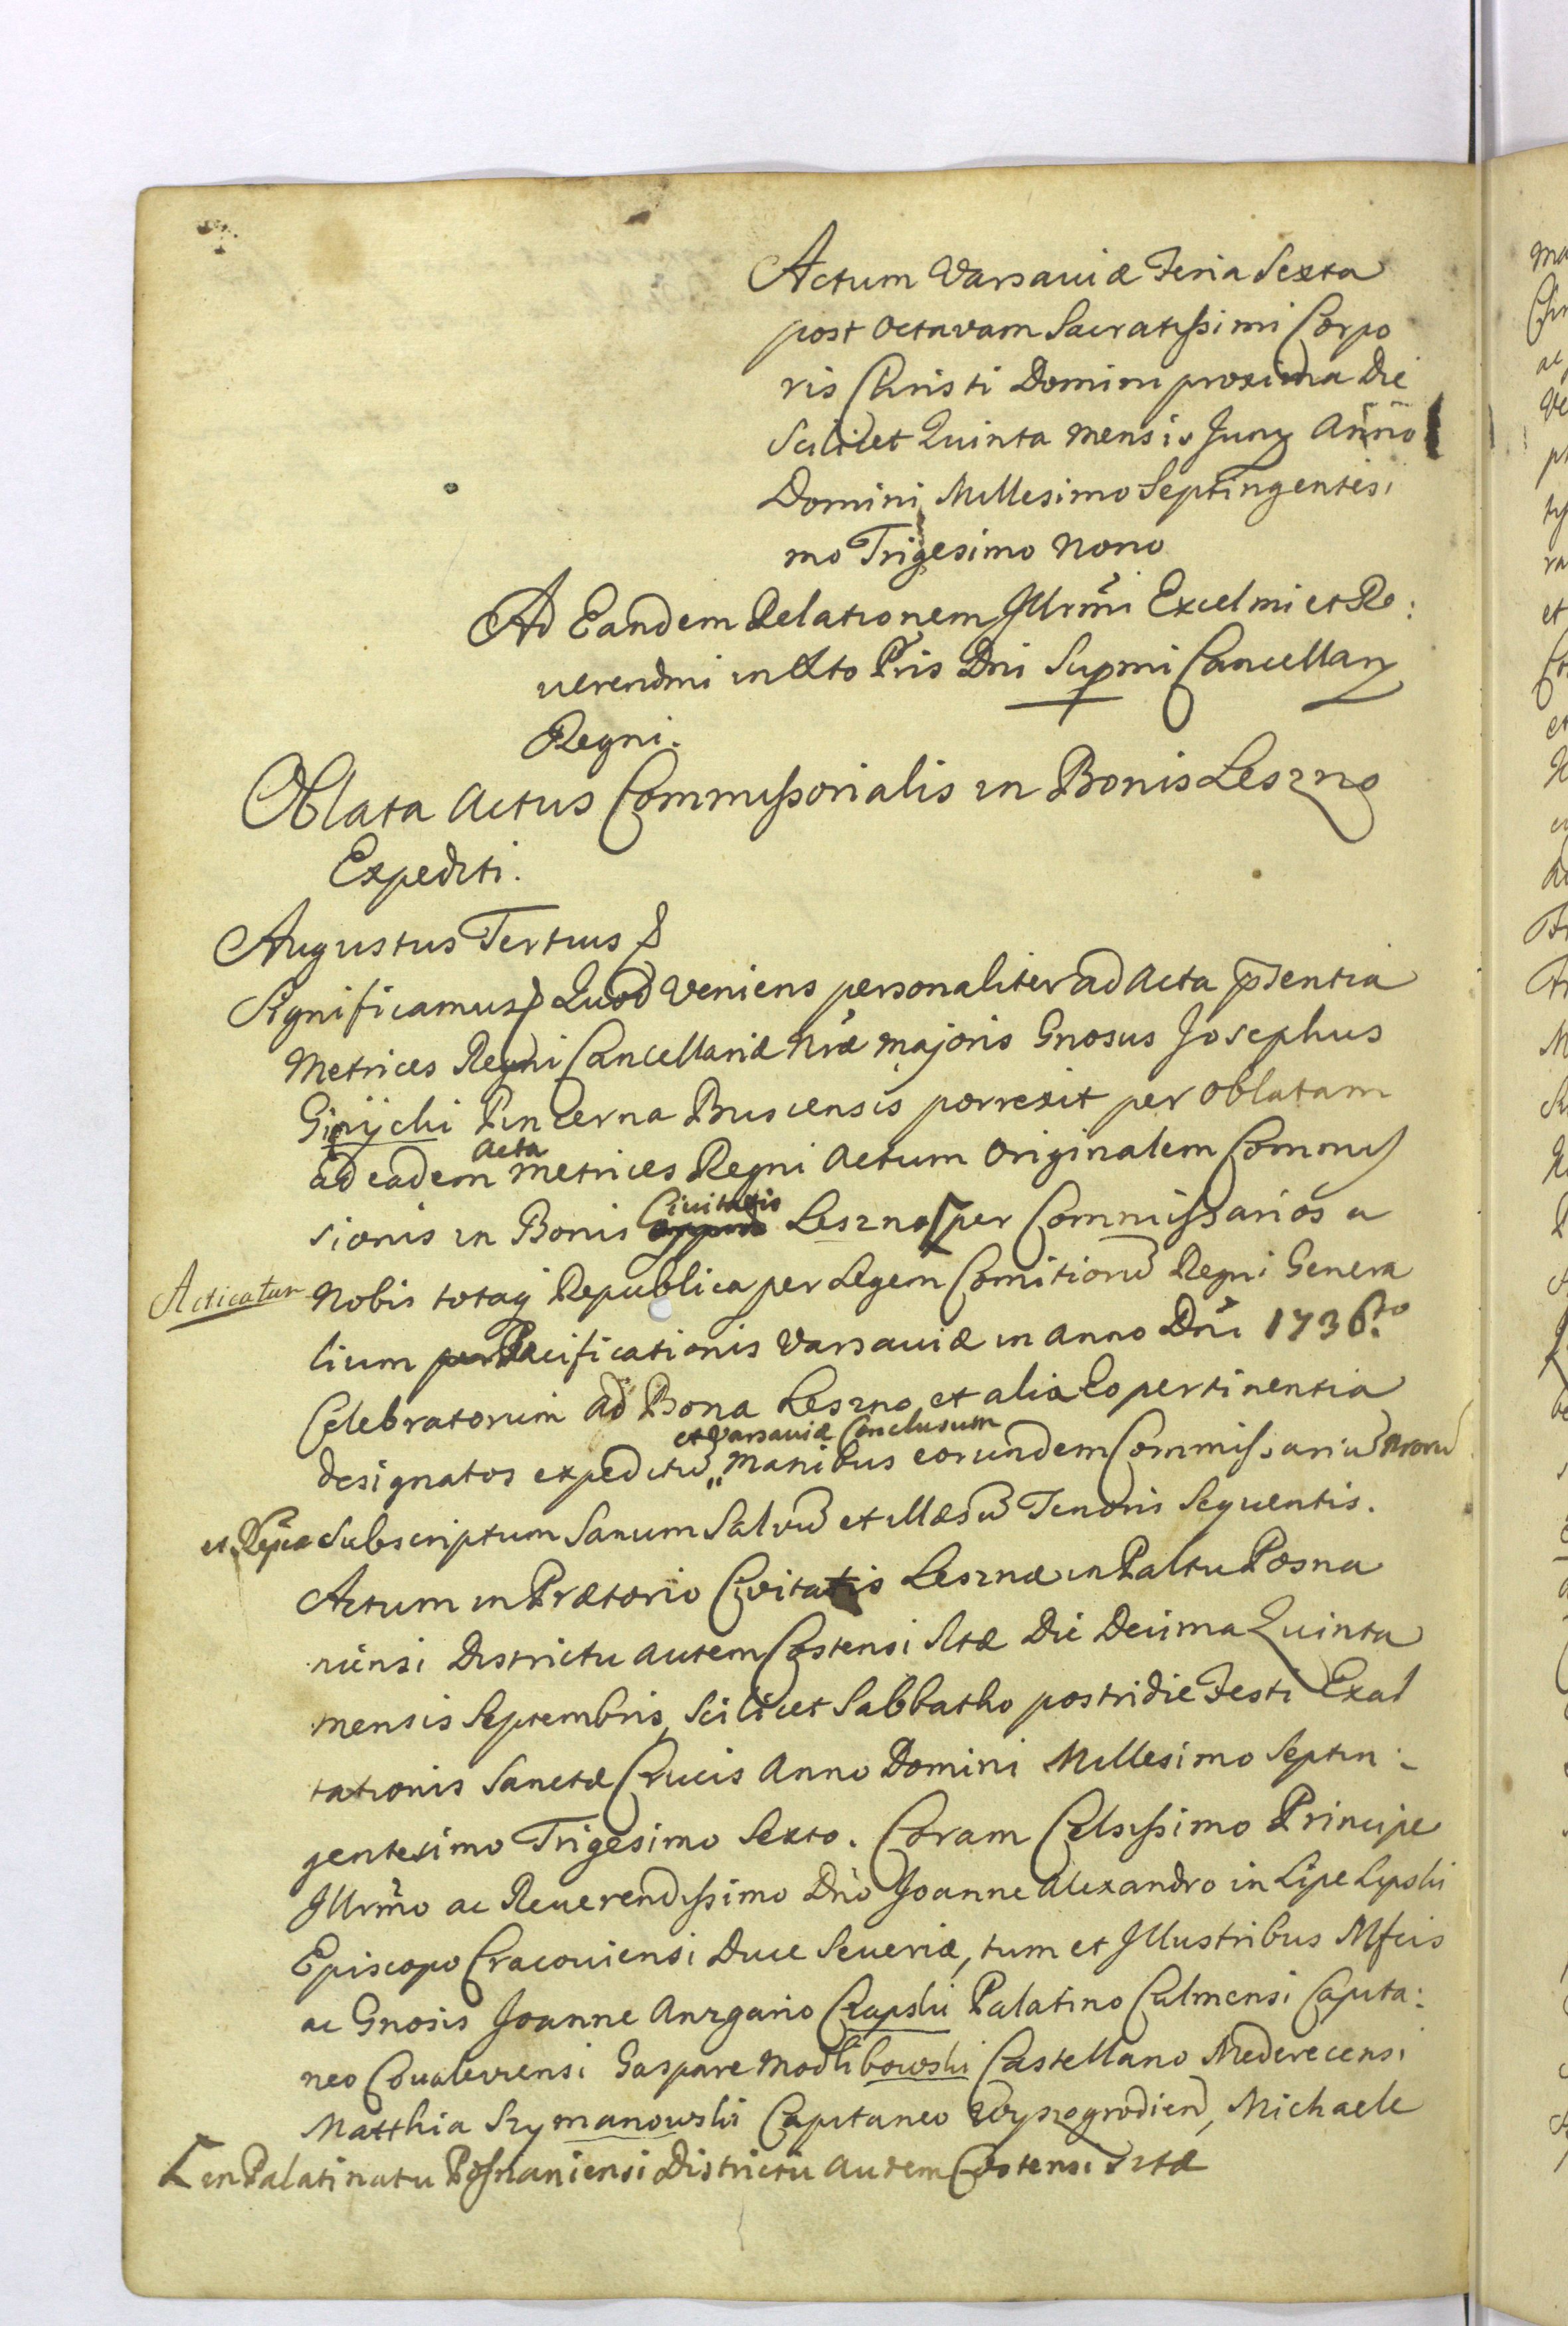 Actum Varsaviæ Feria Sexta
post Octavam Sacratissimi Corpo
ris Christi Domini proxima Die
Scilicet Quinta mensis Juny Anno
Domini Millesimo Septingentesi
mo Trigesimo Nono
Ad Eandem Relationem Illrmi Excelmi et Re:
verendmi in Xto Pris Dni Supmi Cancellary
Regni.
Oblata Actus Commissorialis in Bonis Leszno
Expediti.
Augustus Tertius
Significamus Quod veniens personaliter ad Acta psentia
Metrices Regni Cancellariæ Nræ majoris Gnosus Josephus
Pincerna Buscensis porrexit per oblatam
Acta
ad eadem Metrices Regni Actum Originalem Commis
Civitatis
sionis in Bonis Leszno per Commissarios a
Acticatur Nobis totaq Republica per Legem Comitioru Regni Genera
lium Pacificationis Varsaviæ in anno Dni 1736to
Celebratorum ad Bona Leszno et alia Eo pertinentia
et Varsaviæ Conclusum
designatos expeditu manibus eorundem Commissariu Nroru
et Rpcæ Subscriptum Sanum Salvu et illæsu Tenoris Sequentis.
Actum in Prætorio Civitatis Lesznæ in Paltu Posna
niensi Districtu autem Costensi Sitæ Die Decima Quinta
mensis Septembris, Scilicet Sabbatho postridie Festi Exal
tationis Sanctæ Crucis Anno Domini Millesimo Septin:
gentesimo Trigesimo Sexto. Coram Celsissimo Principe
Illrmo ac Reverendissimo Dno Joanne Alexandro in Lipe Lipski
Episcopo Cracoviensi Duce Severiæ, tum et Illustribus Mfcis
ac Gnosis Joanne Anzgario Czapski Palatino Culmensi Capita:
neo Covaleviensi Gaspare Modlibowski Castellano Mederecensi
Matthia Szymanowski Capitaneo Wyszogrodien, Michaele
in Palatinatu Posnaniensi Districtu autem Costensi Sitæ